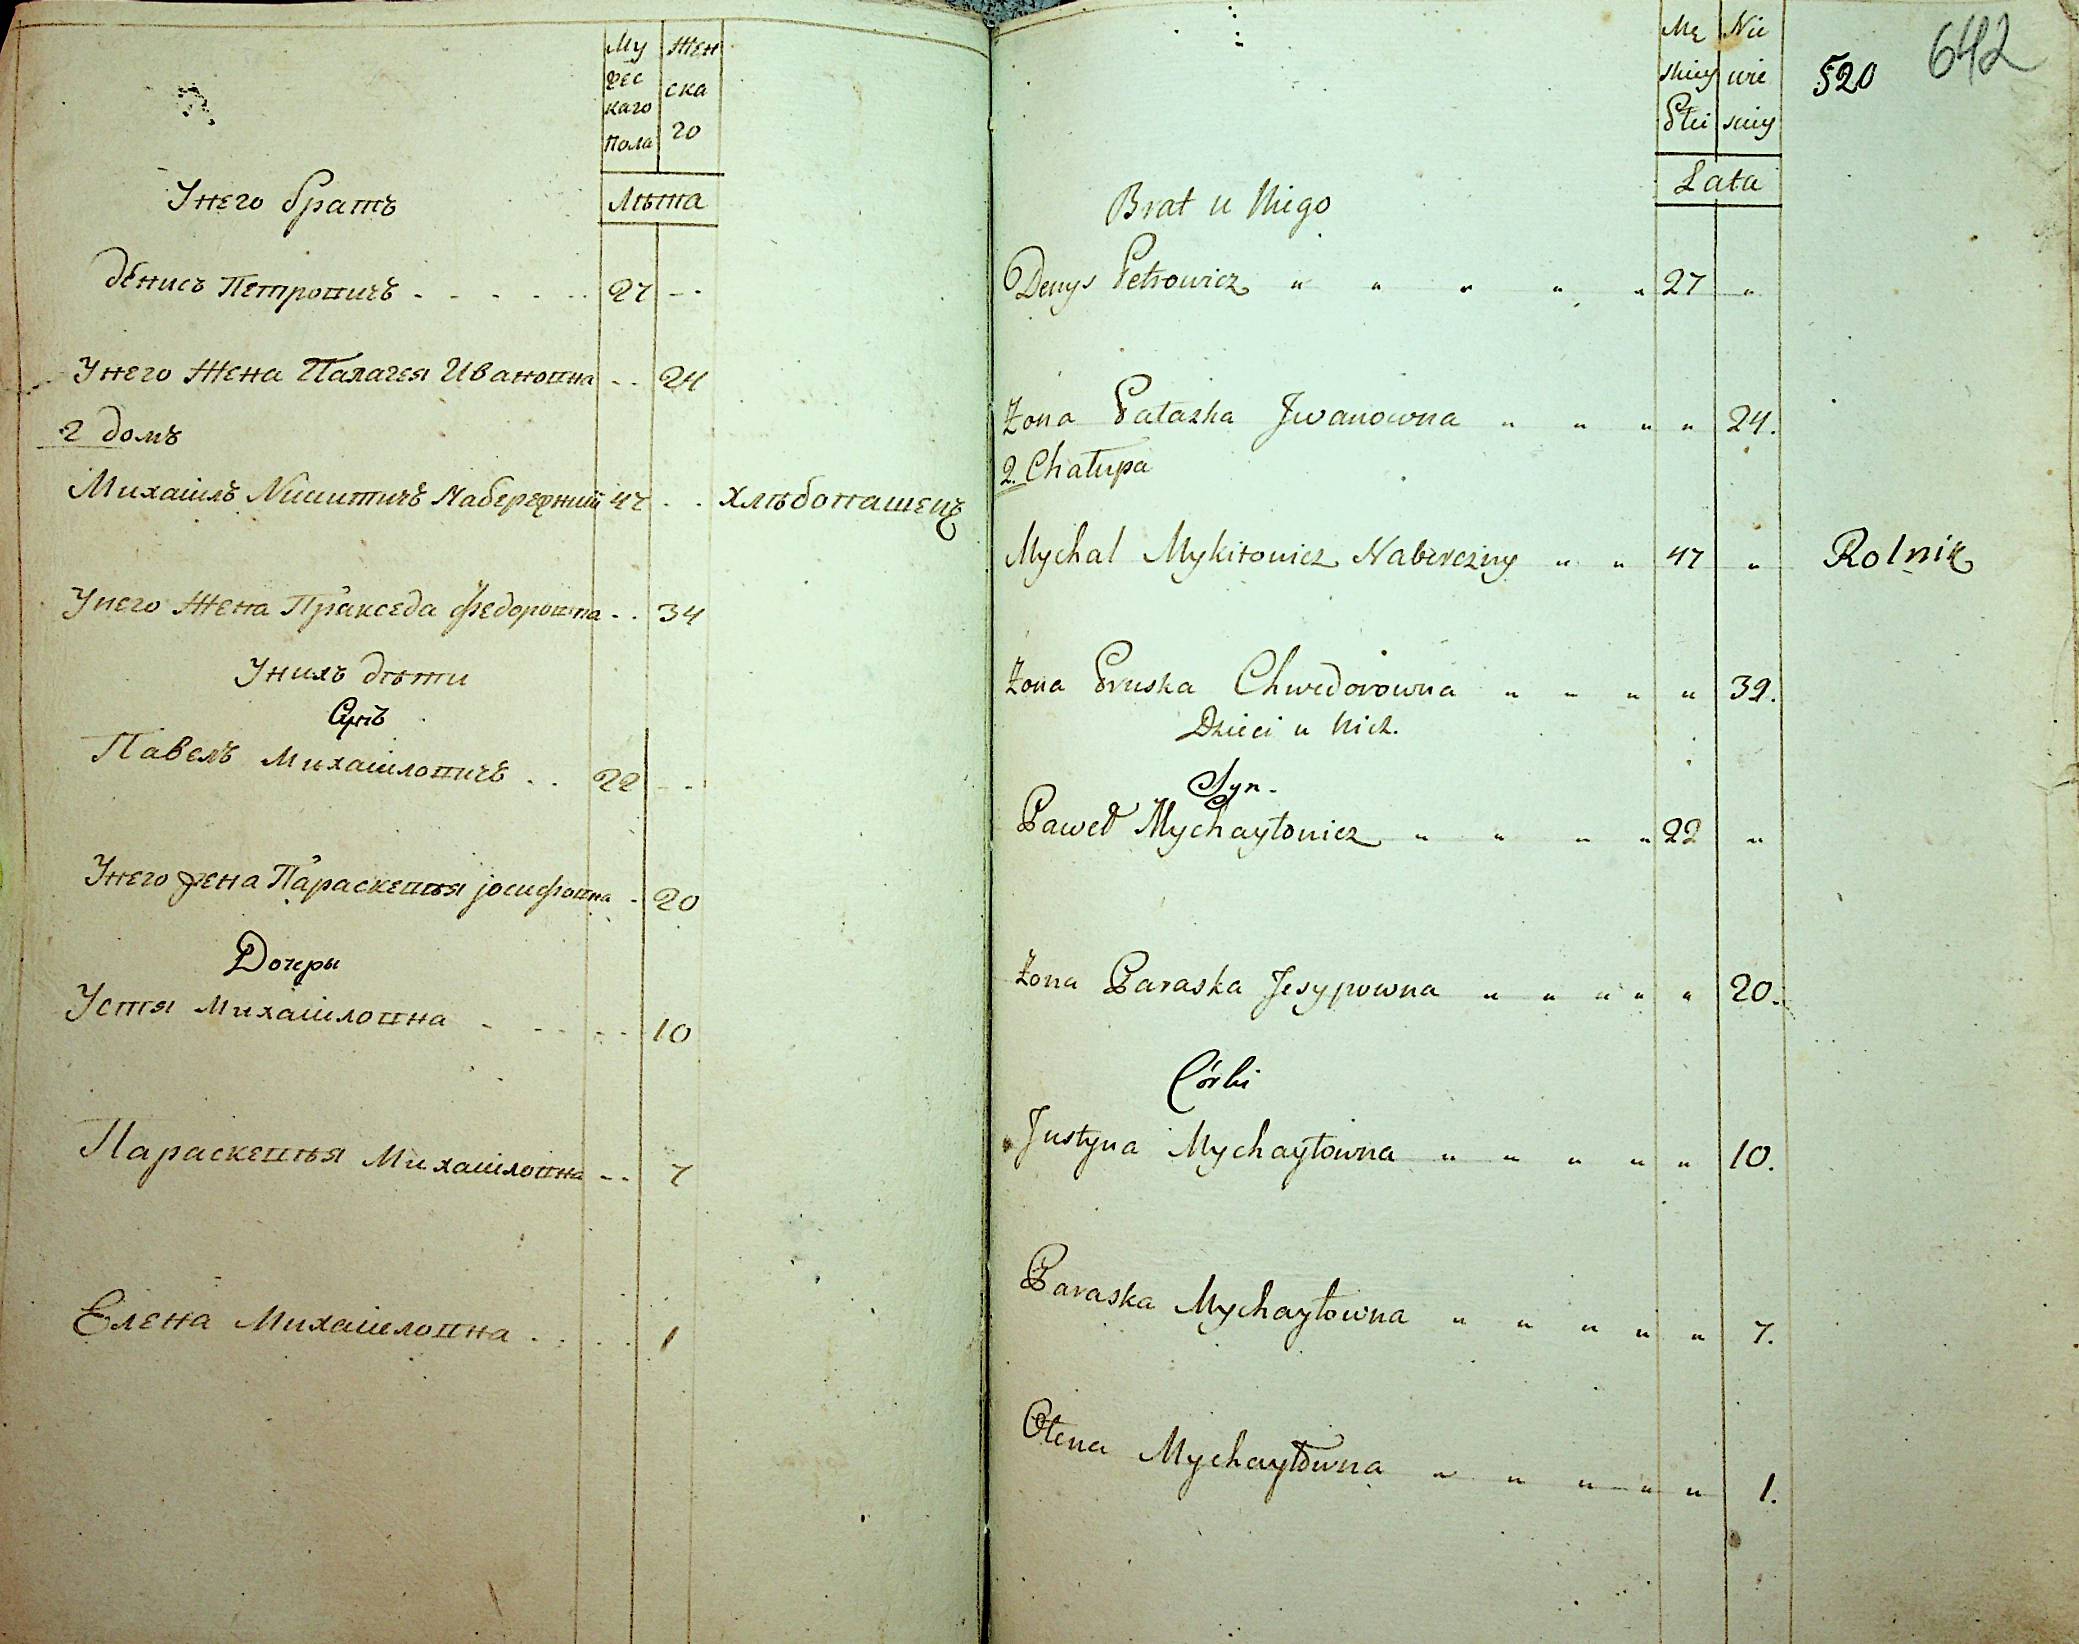 Му
жес
каго
пола
Жен
ска
го
Лѣта
Унего братъ
Денисъ Петровичъ 27
Унего Жена Палагея Ивановна 24
2 домъ
Михайлъ Никитичъ Набережний 47 хлѣбопашецъ
Унего Жена Праксeда Федоровна 34
Унихъ дѣти
Сынъ
Павелъ Михайловичъ 22
Унего жена Параскевія Іосифовна 20
Дочеры
Устя Михайловна 10
Параскевья Михайловна 7
Елена Михайловна 1
Mę
skiey
Płci
Nie
wie
sciey
520
642
Lata
Brat u Niego
Denys Petrowicz " " " " " 27 "
Żona Pałazka Jwanowna " " " " 24.
2. Chałupa
Mychal Mykitowicz Nabereżny " " 47 " Rolnik
Żona Pruska Chwedorowna " " " " 39.
Dzieci u Nich.
Syn.
Paweł Mychayłowicz " " " " 22 "
Żona Paraska Jesypowna " " " " " 20.
Córki
Justyna Mychayłowna " " " " " 10.
Paraska Mychayłowna " " " " " 7.
Ołena Mychayłowna " " " " " 1.